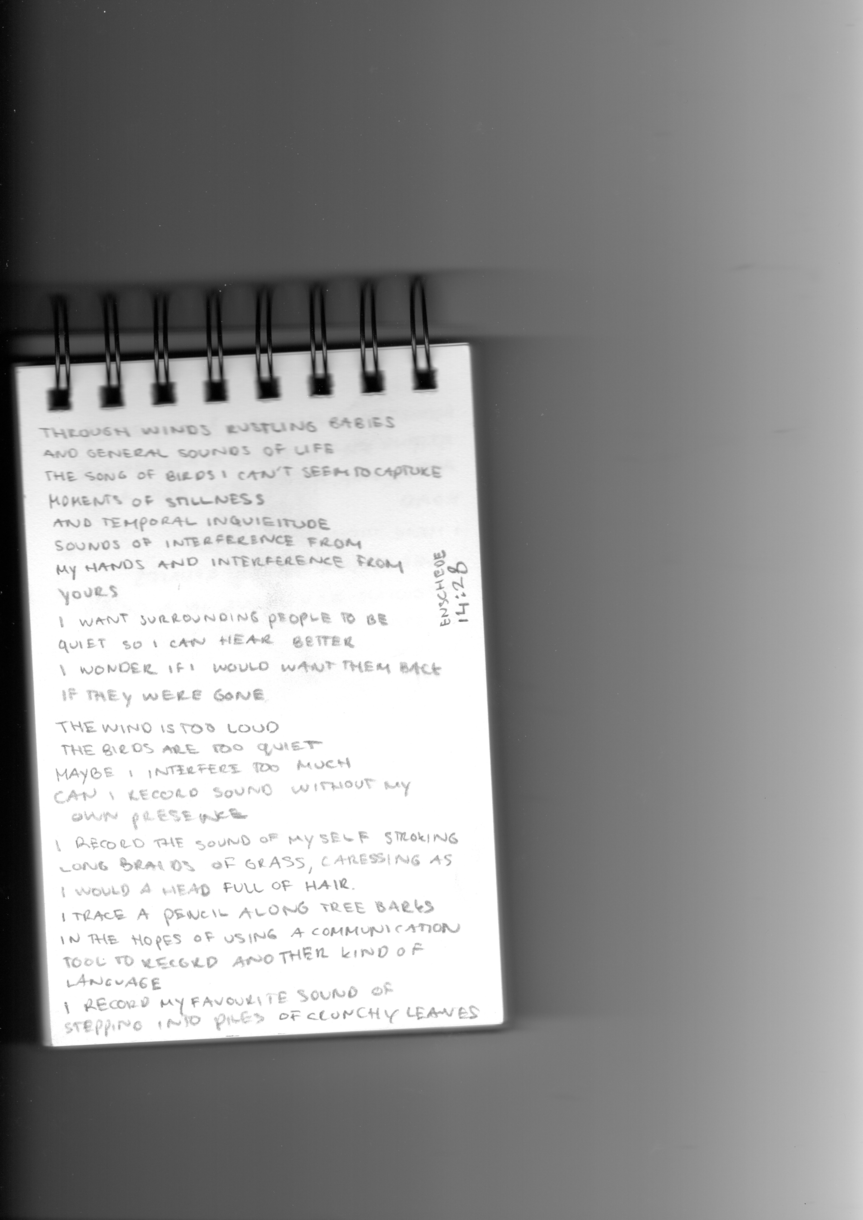 THROUGH WINDS RUSTLING BABIES
AND GENERAL SOUNDS OF LIFE
THE SONG OF BIRDS I CAN'T SEEM TO CAPTURE
MOMENTS OF STILLNESS
AND TEMPORAL INQUIEITUDE
SOUNDS OF INTERFERENCE FROM
MY HANDS AND INTERFERENCE FROM
YOURS
I WANT SURROUNDING PEOPLE TO BE
QUIET SO I CAN HEAR BETTER
I WONDER IF I WOULD WANT THEM BACK
IF THEY WERE GONE
THE WIND IS TOO LOUD
THE BIRDS ARE TOO QUIET
MAYBE I INTERFERE TOO MUCH
CAN I RECORD SOUND WITHOUT MY
OWN PRESENCE
I RECORD THE SOUND OF MYSELF STROKING
LONG BRAIDS OF GRASS, CARESSING AS
I WOULD A HEAD FULL OF HAIR.
I TRACE A PENCIL ALONG TREE BARKS
IN THE HOPES OF USING A COMMUNICATION
TOOL TO RECORD ANOTHER KIND OF
LANGUAGE
I RECORD MY FAVOURITE SOUND OF
STEPPING INTO PILES OF CRUNCHY LEAVES
ENSCHEDE
14:28